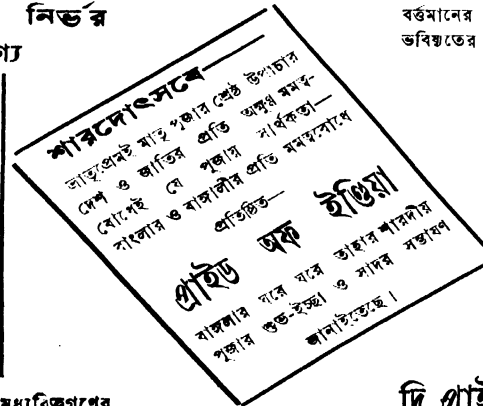 নির্ভর
বর্ত্তমানের
ভবিষ্যতের
শারদোৎসবে—
ভ্রাতৃপ্রেমই মাতৃ পূজার শ্রেষ্ঠ উপাচার
দেশ ও জাতির প্রতি অক্ষুণ্ণ মমত্ব-
বোধেই যে পূজায় সার্থকতা—
বাংলার ও বাঙ্গালীর প্রতি মমত্ববোধে
প্রতিষ্ঠিত—
প্রাইড অফ ইণ্ডিয়া
বাঙ্গলার ঘরে ঘরে তাহার শারদীয়
পূজার শুভ-ইচ্ছা ও সাদর সম্ভাষণ
জানাইতেছে।
দি